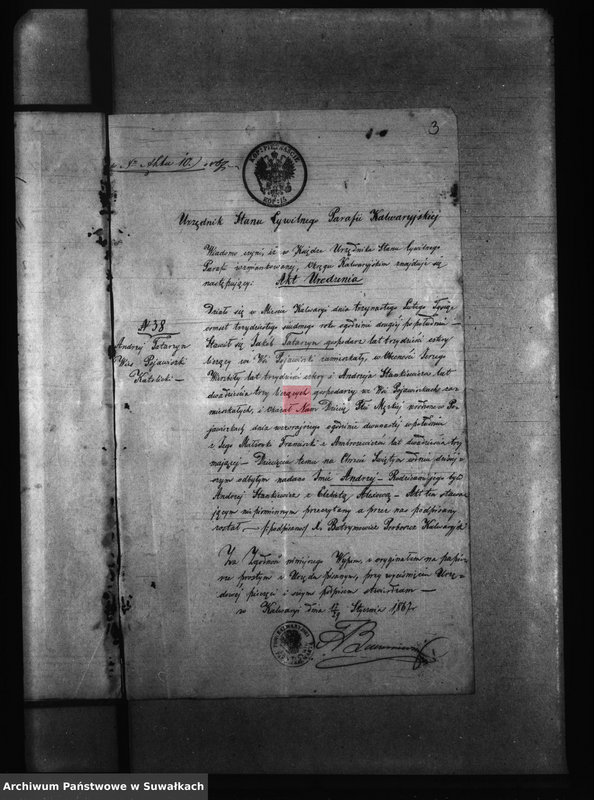 3
Urzędnik Stanu Cywilnego Parafii Kalwaryjskiej
Wiadomo czyni, iż w Księdze Urzędnika Stanu Cywilnego
Parafii wzmiankowanej, Okręgu Kalwaryjskim znajduje się
następujący: Akt Urodzenia
N 38
Andrzej Tataryn
Wieś Pojawiszki
Katolicki
Dział się w Mieście Kalwaryi dnia trzynastego Lutego Tysiąc
ośmset trzydziestego siódmego roku o godzinie drugiej po południu —
Stawił się Jakób Tataryn gospodarz lat trzydzieści cztery
liczący we Wsi zamieszkały, w Obecności Jerzego
lat trzydzieści cztery i Andrzeja Stankiewicza lat
dwadzieścia trzy liczących gospodarzy we Wsi Pojawiszkach za-
mieszkałych, i okazał Nam Dziecię Płci Męzkiej urodzone w Po-
jawiszkach dnia wczorajszego o godzinie dwunastej w południe
z Jego Małżonki Franciszki z Ambrozewiczów lat dwadzieścia trzy
mającej — Dziecięciu temu na Chrzcie Świętym w dniu dzisiej-
szym odbytym nadano Imie Andrzej — Rodzicami jego byli
Andrzej Stankiewicz z Elżbietą — Akt ten stawa-
jącym niepismiennym przeczytany a przez nas podpisany
został — /:podpisano/ X. Butrymowicz Proboszcz Kalwaryjs
Za Zgodność niniejszego Wypisu z oryginałem na papie-
rze prostym z Urzędu pisanym, przy wyciśnięciu Urzę-
dowej pieczęci i swym podpisem stwierdzam —
w Kalwaryi dnia Stycznia 1867 r
Archiwum Państwowe w Suwałkach